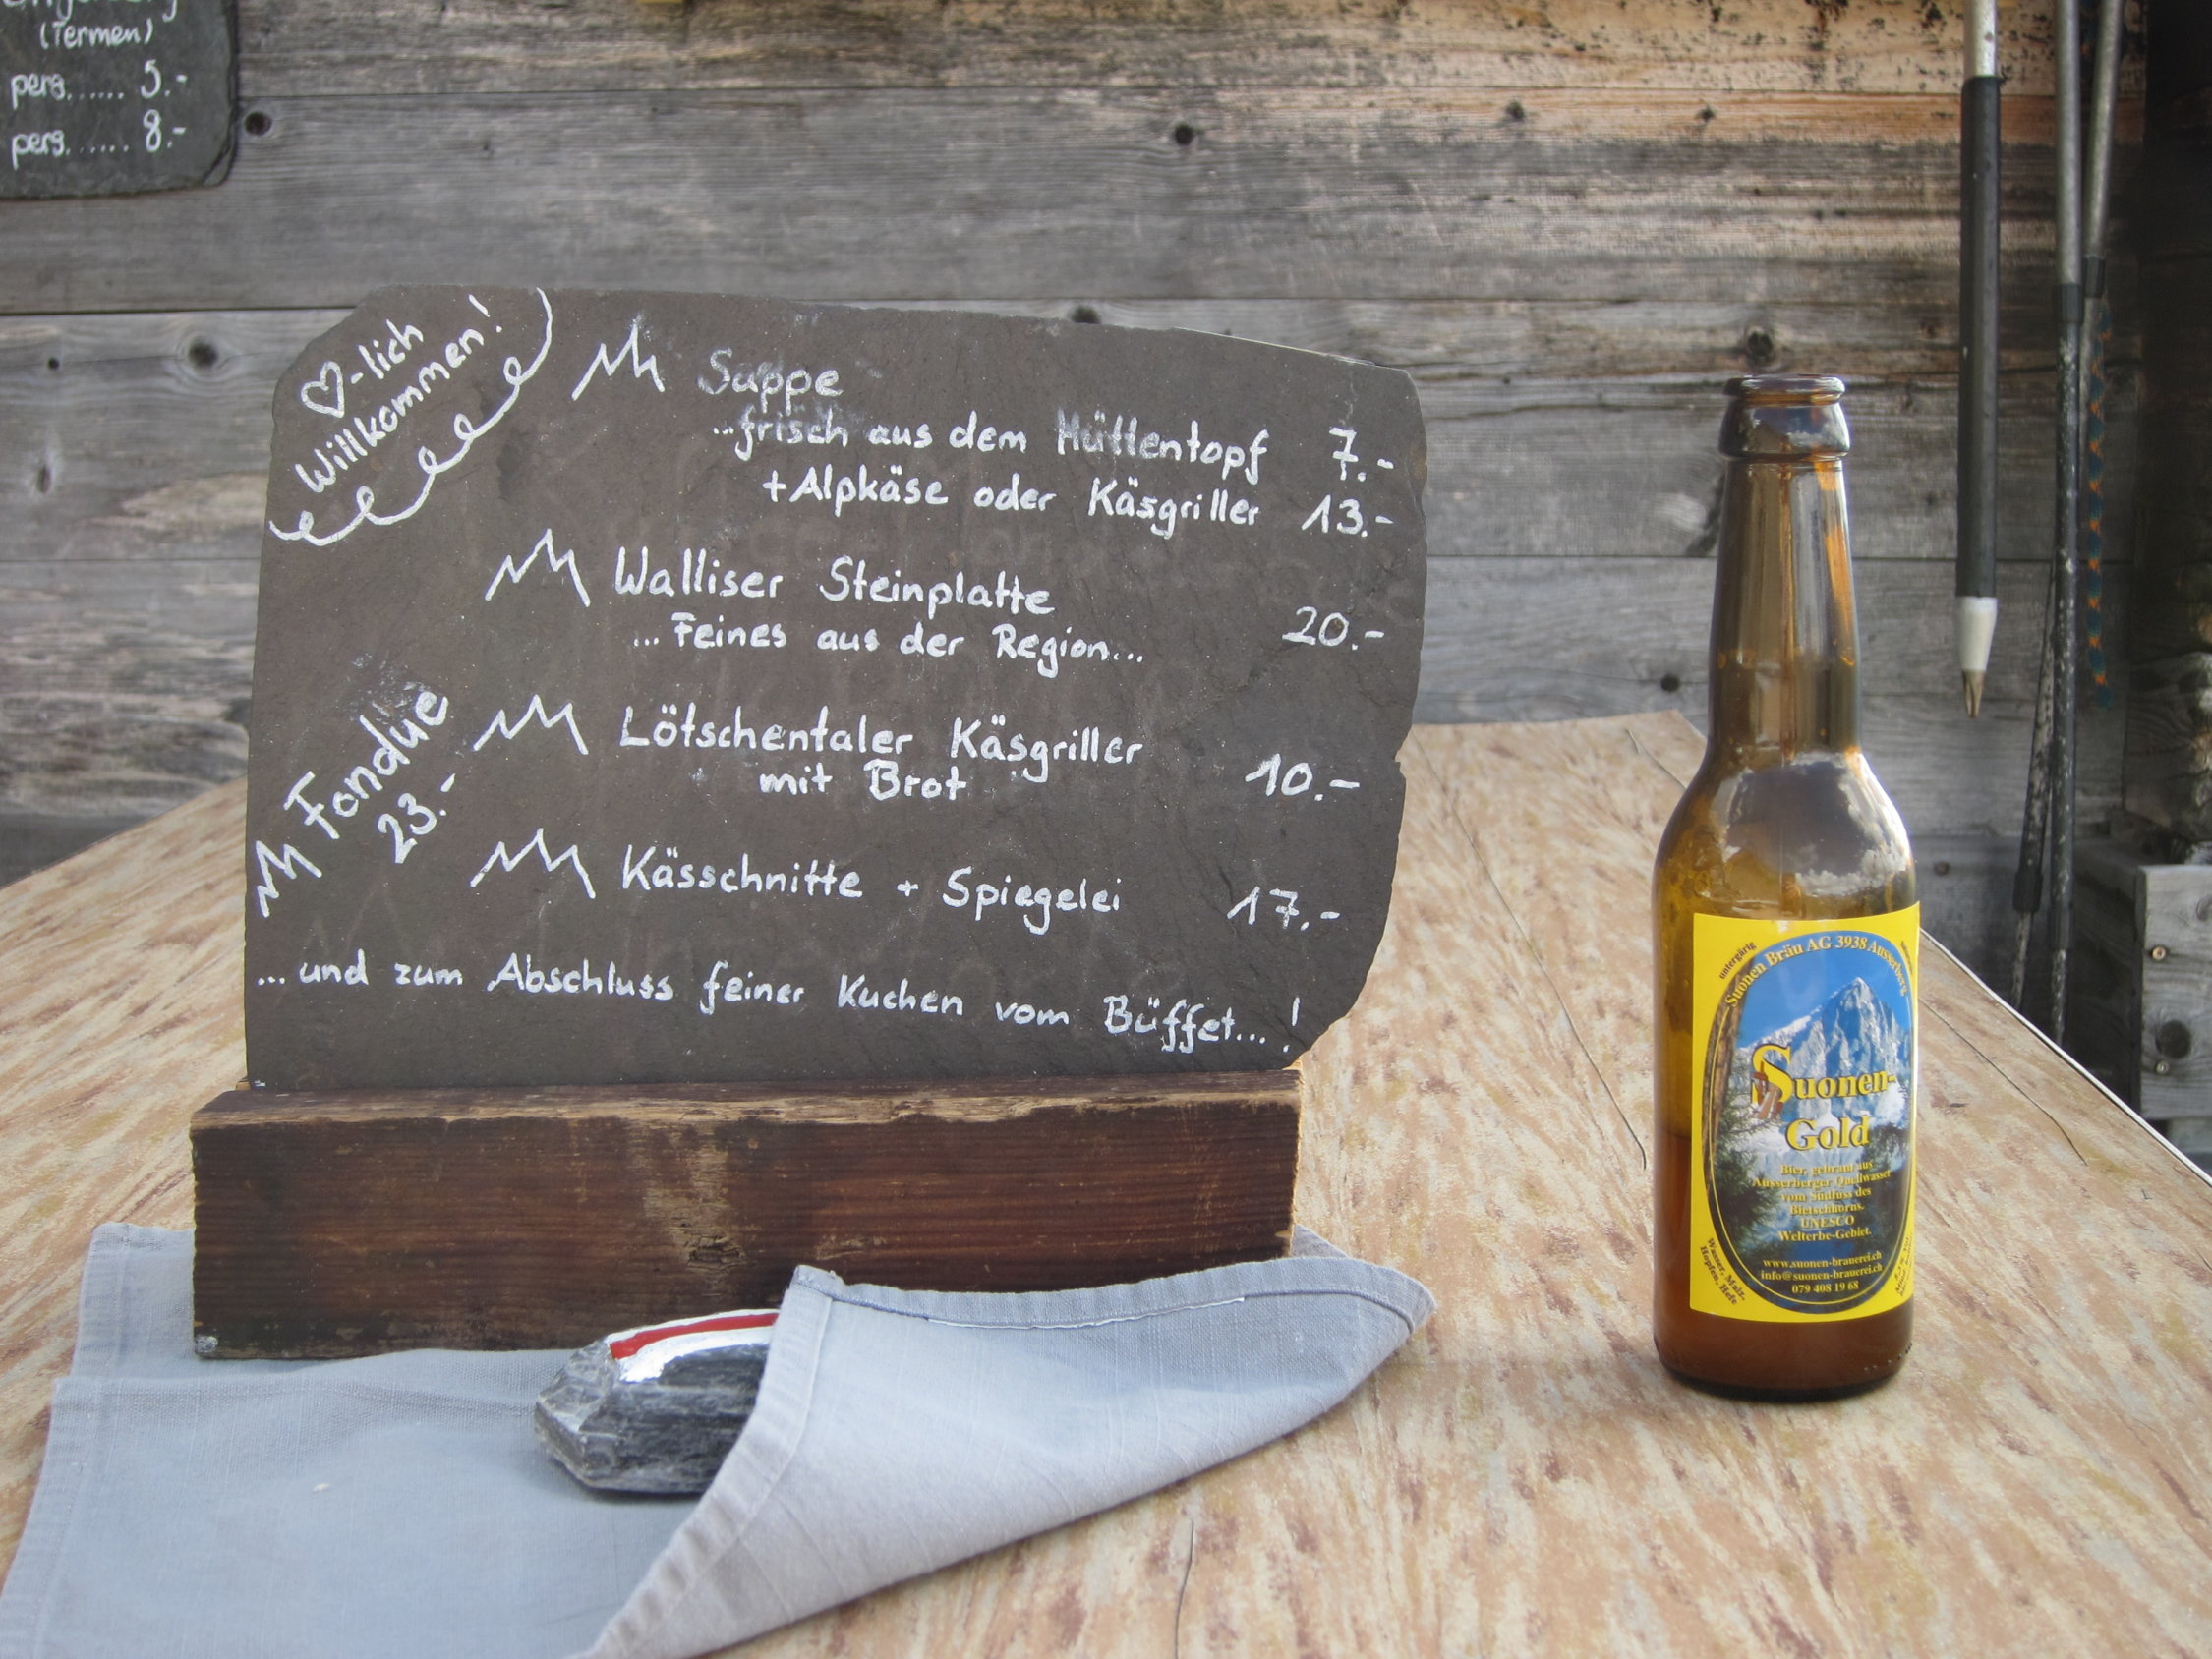 (Termen)
pers...... 5.-
pers...... 8.-
♡-lich
Willkommen!
Suppe
...frisch aus dem Hüttentopf 7.-
+Alpkäse oder Käsgriller 13.-
Walliser Steinplatte
...Feines aus der Region... 20.-
Lötschentaler Käsgriller
mit Brot 10.-
Fondue
23.-
Kässchnitte + Spiegelei 17.-
...und zum Abschluss feiner Kuchen vom Büffet...!
untergärig
Suonen Bräu AG 3938 Ausserberg
Suonen-
Gold
Bier, gebraut aus
Ausserberger Quellwasser
vom Südfuss des
Bietschhorns.
UNESCO
Welterbe-Gebiet.
www.suonen-brauerei.ch
info@suonen-brauerei.ch
079 408 19 68
Wasser, Malz,
Hopfen, Hefe